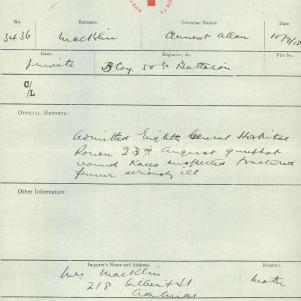 No. Surname. Christian Names
3436 Macklin Clement Allan 10/9/18
Rank. Regiment, &c. File No.
Private B Coy. 50th Battalion
C/L
OFFICIAL REPORTS:
Admitted Eighth General Hospital
Rouen 23rd August gunshot
wound Knees suspected fractured
femur seriously ill
Other Information:
Inquirer's Name and Address. Relation.
Mrs Macklin Mother
218 Gilbert St
Adelaide